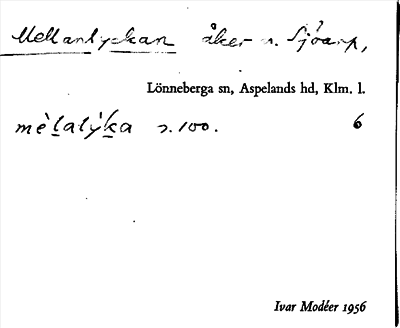 Mellanlyckan åker n. Sjöarp,
Lönneberga sn, Aspelands hd, Klm. l.
mèlalýka s. 100.
6
Ivar Modéer 1956